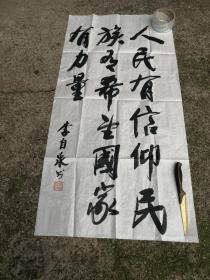 人民有信仰民
族有希望國家
有力量
李自泉书